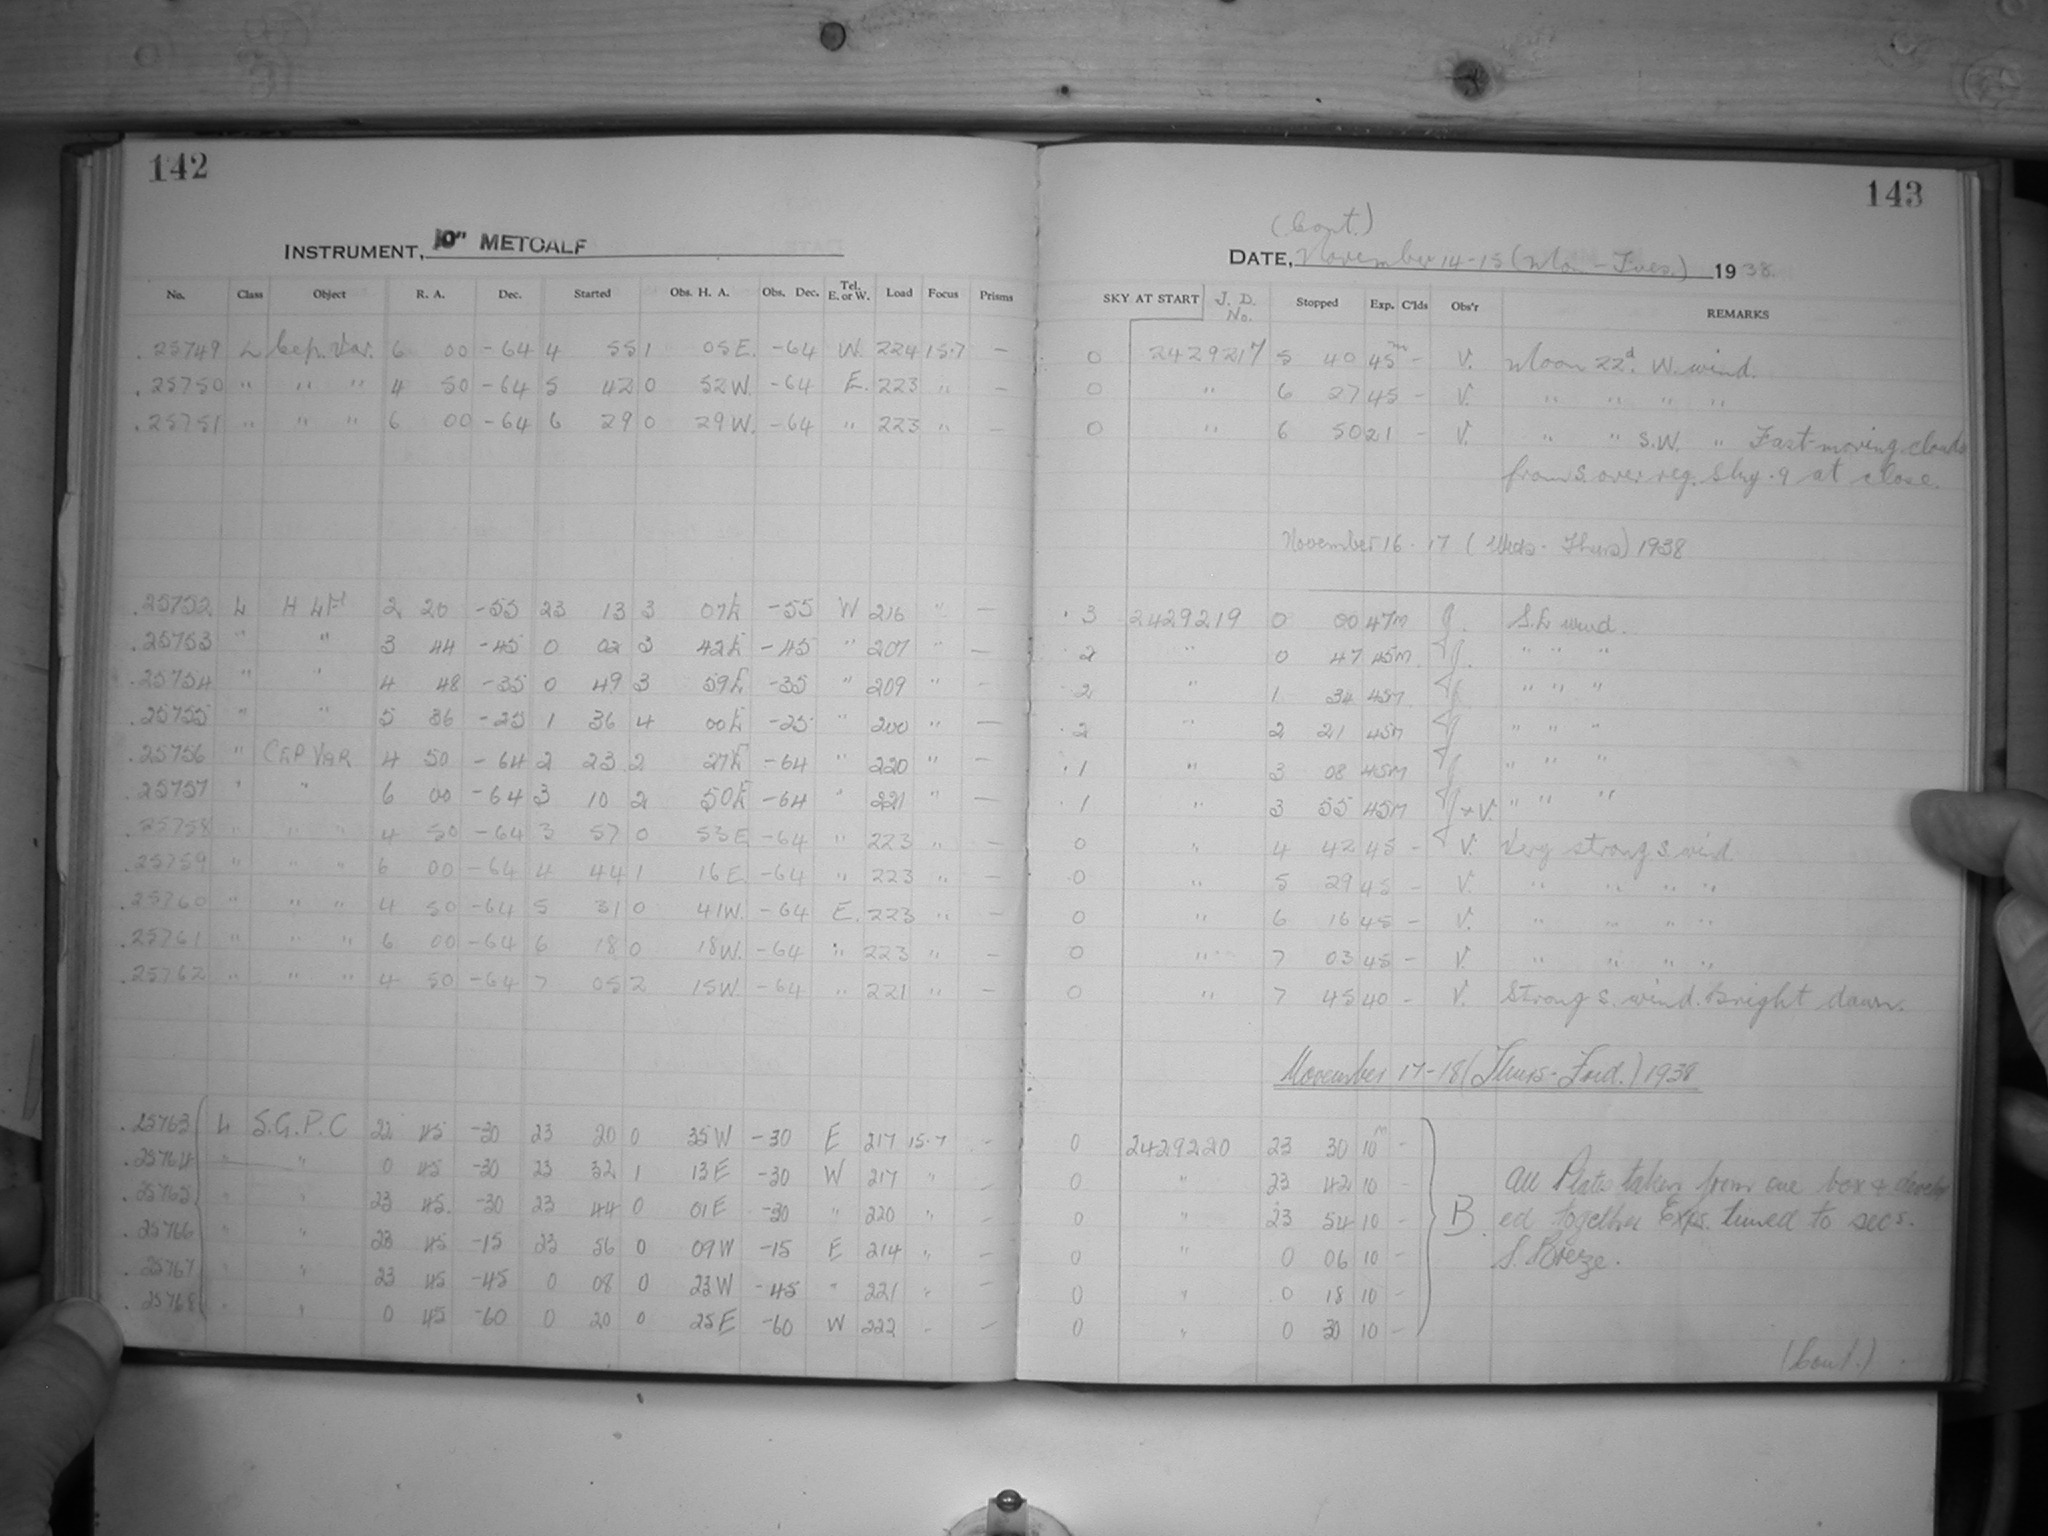 142
INSTRUMENT, 10" METCALF
No. Class Object R. A. Dec. Started Obs. H. A. Obs. Dec. Tel. E. or W. Load Focus Prisms
.25749 L Cep. Var. 6 00 -64 4 55 1 05 E. -64 W. 224 15.7 —
.25750 " " " 4 50 -64 5 42 0 52 W. -64 E. 223 " —
.25751 " " " 6 00 -64 6 29 0 29 W. -64 " 223 " —
.25752 L H 4 2 20 -55 23 13 3 07 E -55 W 216 " —
.25753 " " 3 44 -45 0 02 3 42 E -45 " 207 " —
.25754 " " 4 48 -35 0 49 3 59 E -35 " 209 " —
.25755 " " 5 36 -25 1 36 4 00 E -25 " 200 " —
.25756 " CEP VAR 4 50 -64 2 23 2 27 E -64 " 220 " —
.25757 " " 6 00 -64 3 10 2 50 E -64 " 221 " —
.25758 " " " 4 50 -64 3 57 0 53 E -64 " 223 " —
.25759 " " " 6 00 -64 4 44 1 16 E -64 " 223 " —
.25760 " " " 4 50 -64 5 31 0 41 W. -64 E. 223 " —
.25761 " " " 6 00 -64 6 18 0 18 W. -64 " 223 " —
.25762 " " " 4 50 -64 7 05 2 15 W -64 " 221 " —
.25763 L S.G.P.C 22 45 -30 23 20 0 35 W -30 E 217 15.7 —
.25764 " " 0 45 -30 23 32 1 13 E -30 W 217 " —
.25765 " " 23 45 -30 23 44 0 01 E -30 " 220 " —
.25766 " " 23 45 -15 23 56 0 09 W -15 E 214 " —
.25767 " " 23 45 -45 0 08 0 23 W -45 " 221 " —
.25768 " " 0 45 -60 0 20 0 25 E -60 W 222 " —
143
(Cont.)
DATE, November 14-15 (Mon - Tues.) 1938
SKY AT START J. D. No. Stopped Exp. C'lds Obs'r REMARKS
0 2429217 5 40 45m - V. Moon 22d. W. wind.
0 " 6 27 45 - V. " " " "
0 " 6 50 21 - V. " " S.W. " Fast-moving clouds
from S. over reg. Sky .9 at close.
November 16 - 17 (Weds - Thurs) 1938
.3 2429219 0 00 47m J. S.E wind.
.2 " 0 47 45m J. " " "
.2 " 1 34 45m J. " " "
.2 " 2 21 45m J " " "
.1 " 3 08 45m J " " "
.1 " 3 55 45m J + V. " " "
0 " 4 42 45 - V. Very strong S. wind
0 " 5 29 45 - V. " " " "
0 " 6 16 45 - V. " " " "
0 " 7 03 45 - V. " " " "
0 " 7 45 40 - V. Strong S. wind. Bright dawn.
November 17-18 (Thurs - Frid.) 1938
0 2429220 23 30 10m -
0 " 23 42 10 - All Plates taken from one box & develop
0 " 23 54 10 - B. ed together Exps. timed to secs.
0 " 0 06 10 - S. Breeze.
0 " 0 18 10 -
0 " 0 30 10 -
(Cont.)